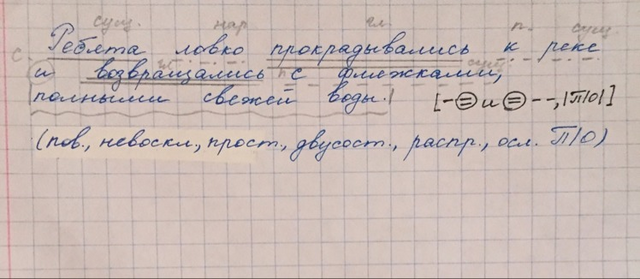 сущ. нар. гл. п. сущ.
Ребята ловко прокрадывались к реке
с. гл. п. сущ.
и возвращались с фляжками,
полными свежей воды.| [-⊜и⊜--,|П/О|]
(пов., невоскл., прост., двусост., распр., осл. П/О)